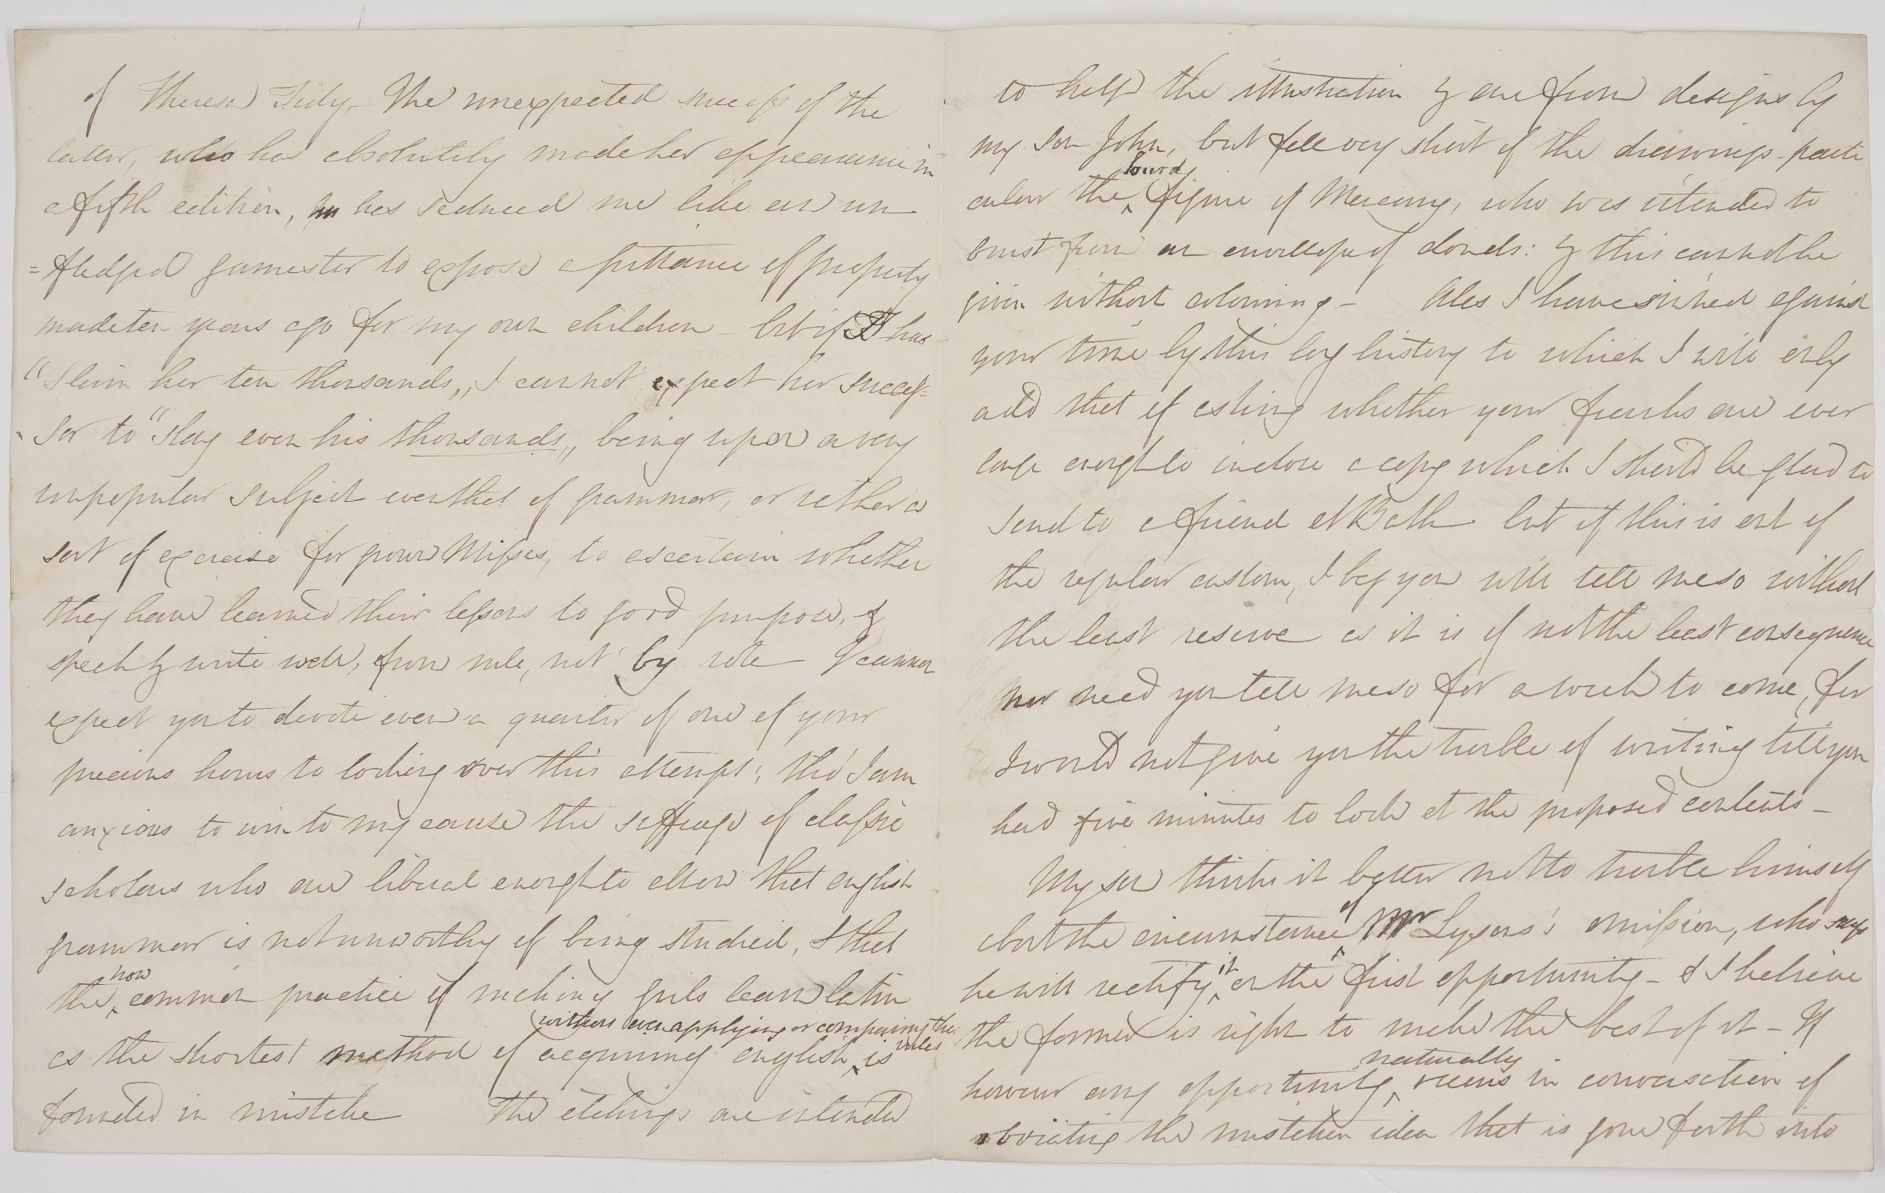 of Theresa Tidy - The unexpected success of the
latter, who has absolutely made her appearance in
a fifth edition, has seduced me like an un
=fledged gamester to expose a pittance of property
made ten years ago for my own children - but if T has
"Slain her ten thousands,, I cannot expect her succes=
sor to "slay even his thousands,, being upon a very
unpopular subject even that of grammar, or rather a
sort of exercise for grown Misses, to ascertain whether
they have learned their lessons to good purpose, &
speak & write well, from rule, not by rote - I cannot
expect you to devote even a quarter of one of your
precious hours to looking over this attempt; tho' I am
anxious to win to my cause the suffrage of classic
scholars who are liberal enough to allow that english
grammar is not unworthy of being studied, & that
the now common practice of making girls learn latin
as the shortest method of acquiring english, without ever applying or comparing the rules is
founded in mistake The etchings are intended
to help the illustration & are from designs by
my son John, but fell very short of the drawings - parti
cular the figure of Mercury, who was intended to
burst from an envelope of clouds: & this cannot be
given without colouring - Alas I have sinned against
your time by this long history to which I will only
add that of asking whether your franks are ever
large enough to inclose a copy which I should be glad to
send to a friend at Bath but if this is out of
the regular custom, I beg you will tell me so without
the least reserve as it is of not the least consequence
nor need you tell me so for a week to come, for
I would not give you the trouble of writing till you
had five minutes to look at the proposed contents -
My son thinks it better not to trouble himself
about the circumstance of Mr Lysons's omission, who says
he will rectify it on the first opportunity - & I believe
the former is right to make the best of it - If
however any opportunity naturally occurs in conversation of
obviating the mistaken idea that is gone forth into